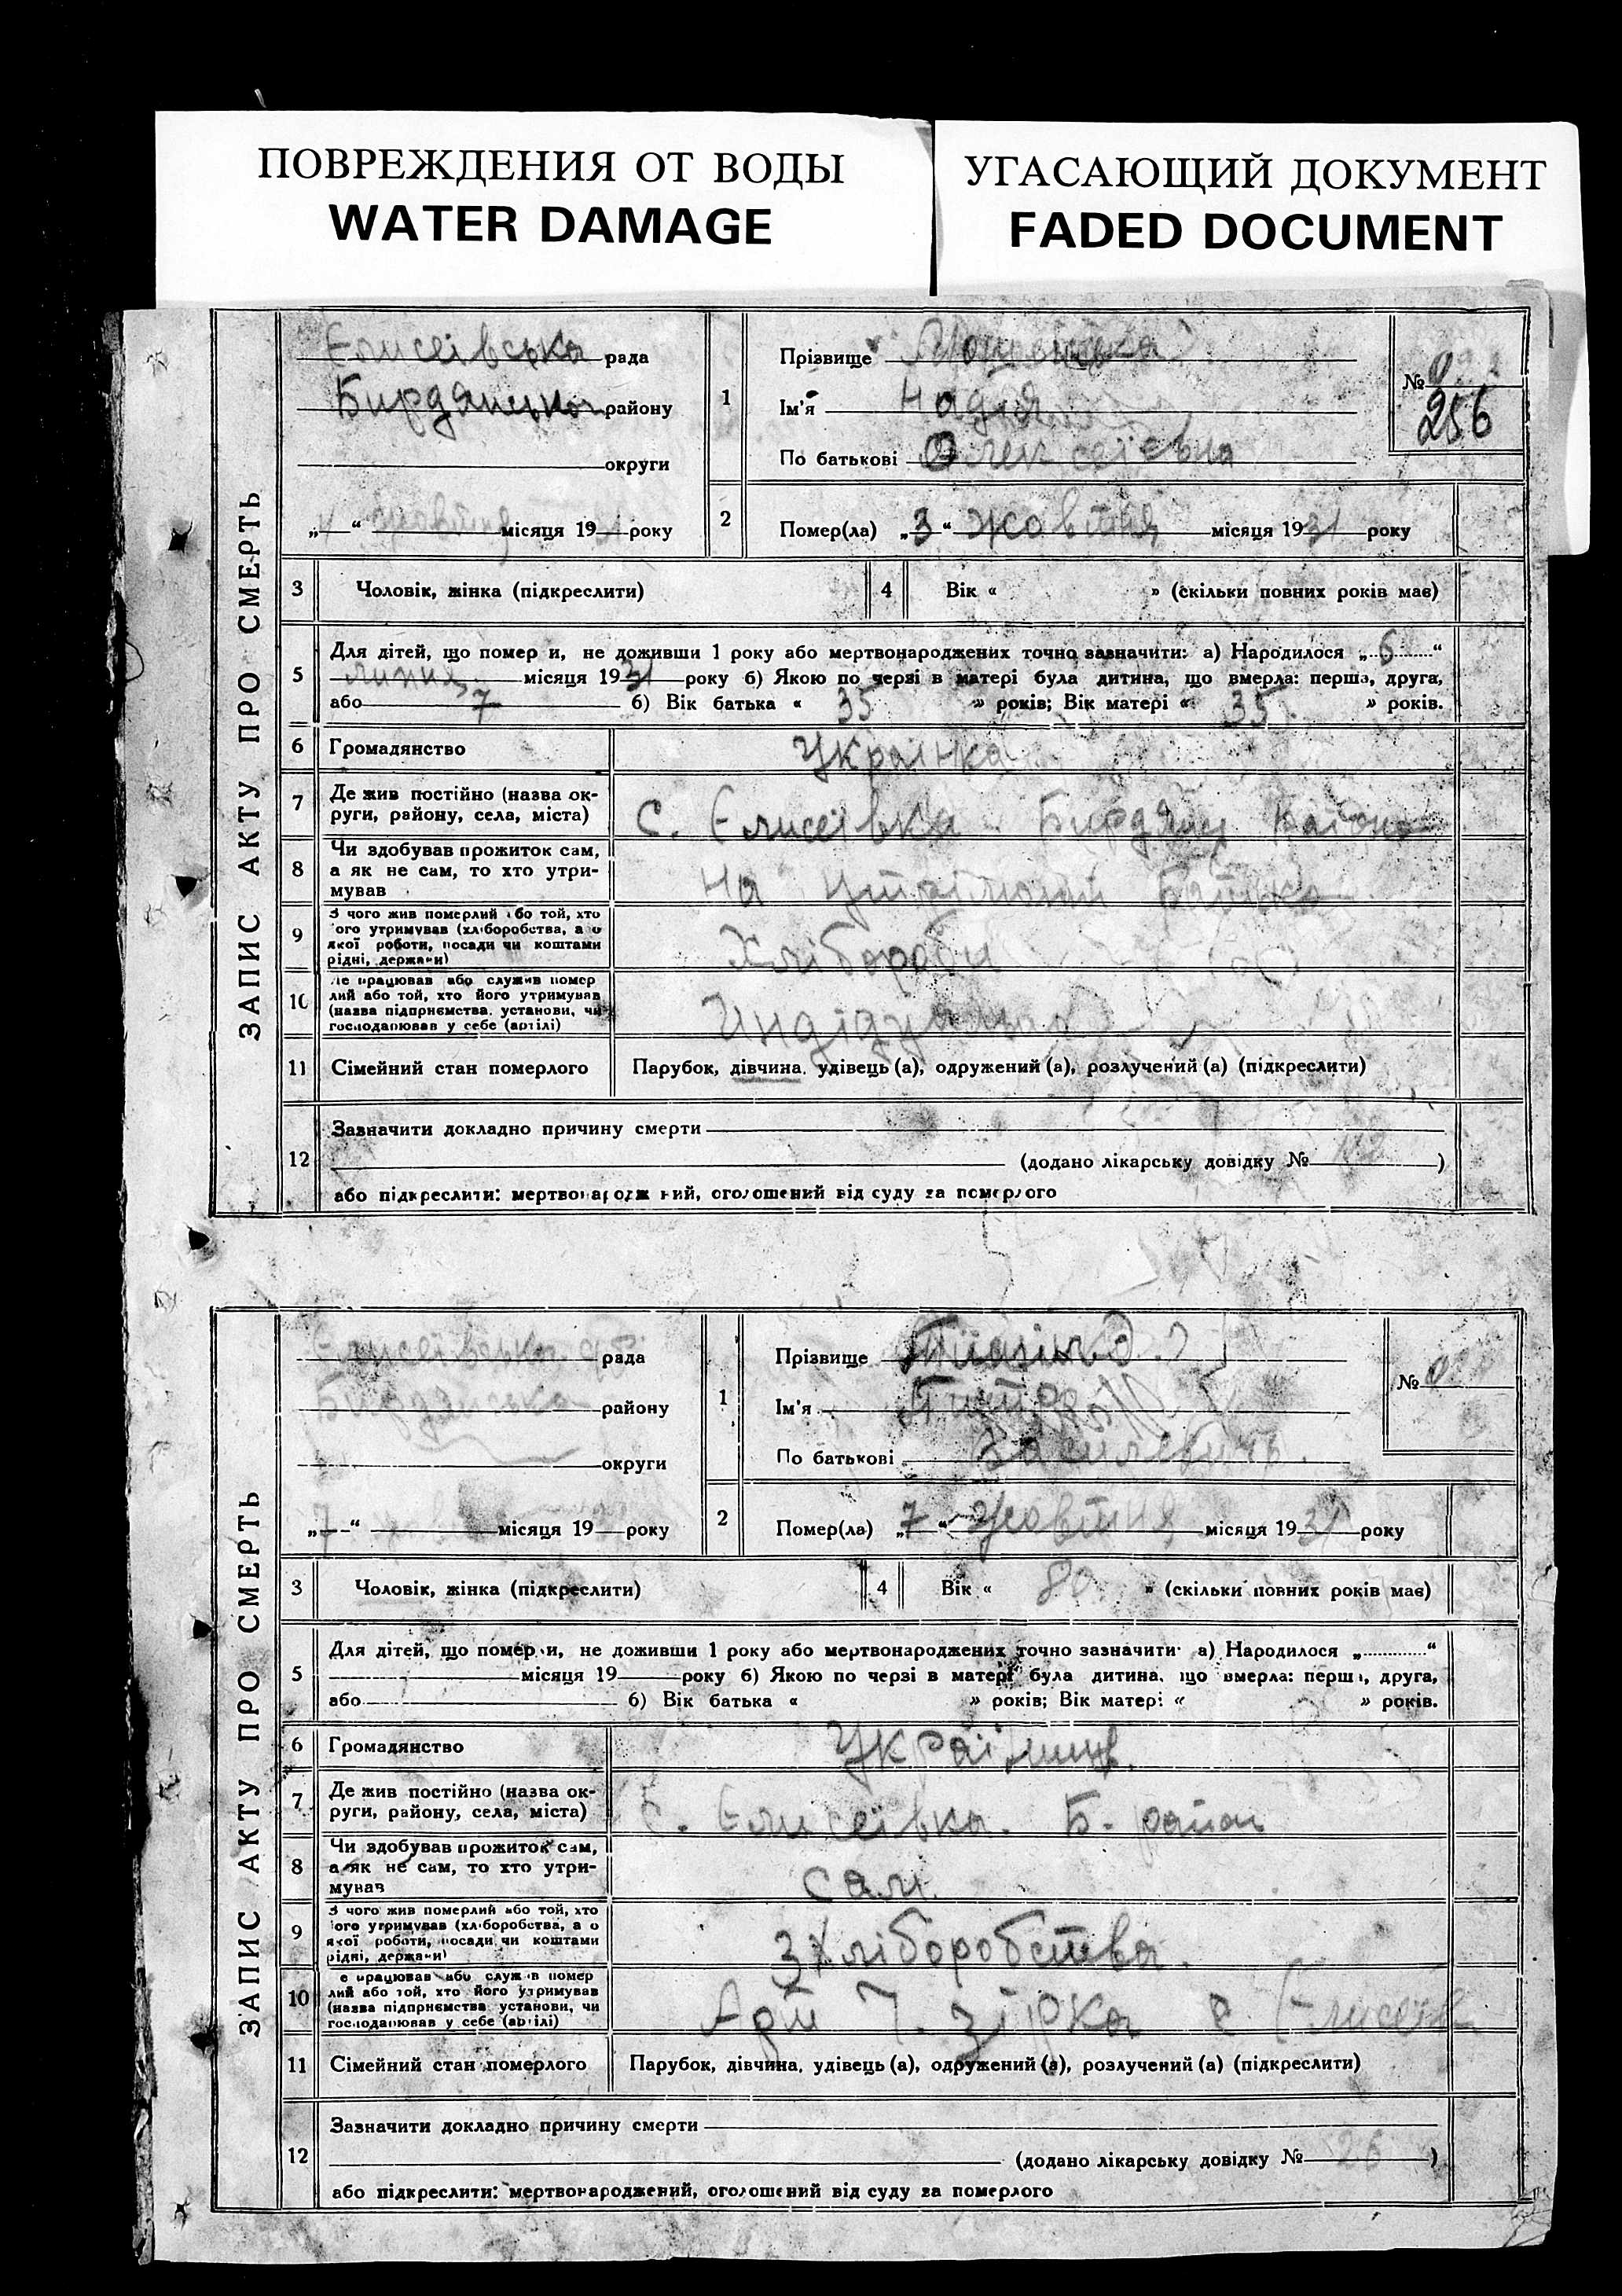 ПОВРЕЖДЕНИЯ ОТ ВОДЫ
WATER DAMAGE
УГАСАЮЩИЙ ДОКУМЕНТ
FADED DOCUMENT
ЗАПИС АКТУ ПРО СМЕРТЬ
Єлисеївська рада
Бирдянська району
округи
„ “ жовтня місяця 1931 року
1
Прізвище
Ім'я Надія
По батькові Олексеївна
№
256
2
Помер(ла) „3“ жовтня місяця 1931 року
3 Чоловік, жінка (підкреслити)
4 Вік « » (скільки повних років має)
5 Для дітей, що помер и, не доживши 1 року або мертвонароджених точно зазначити: а) Народилося „6“
липня місяця 1931 року б) Якою по черзі в матері була дитина, що вмерла: перша, друга,
або 7 б) Вік батька « 35 » років; Вік матері « 35 » років.
6 Громадянство Українка
7 Де жив постійно (назва ок-
руги, району, села, міста) С. Єлисеївка Бирдянц
8 Чи здобував прожиток сам,
а як не сам, то хто утри-
мував На батька
9 З чого жив померлий або той, хто
ого утримував (хліборобства, а о
якої роботи, посади чи коштами
рідні, держави) Хлібороби
10 Де працював або служив помер
лий або той, хто його утримував
(назва підприємства, установи, чи
господарював у себе (артілі)
11 Сімейний стан померлого Парубок, дівчина, удівець (а), одружений (а), розлучений (а) (підкреслити)
12 Зазначити докладно причину смерти
(додано лікарську довідку № )
або підкреслити: мертвонароджений, оголошений від суду за померлого
ЗАПИС АКТУ ПРО СМЕРТЬ
Єлисеївська рада
Бирдянська району
округи
„7“ місяця 19 року
1
Прізвище
Ім'я
По батькові Василевичь
№
2
Помер(ла) „7“ жовтня місяця 1931 року
3 Чоловік, жінка (підкреслити)
4 Вік « 80 » (скільки повних років має)
5 Для дітей, що помер и, не доживши 1 року або мертвонароджених точно зазначити: а) Народилося „ “
місяця 19 року б) Якою по черзі в матері була дитина, що вмерла: перша, друга,
або б) Вік батька « » років; Вік матері « » років.
6 Громадянство Українець
7 Де жив постійно (назва ок-
руги, району, села, міста) С. Єлисеївка. Б. район
8 Чи здобував прожиток сам,
а як не сам, то хто утри-
мував сам.
9 З чого жив померлий або той, хто
ого утримував (хліборобства, а о
якої роботи, посади чи коштами
рідні, держави) З Хліборобства.
10 е працював або служив помер
лий або той, хто його утримував
(назва підприємства установи, чи
господарював у себе (артілі) Арт Ч. зірка с Єлисеївка
11 Сімейний стан померлого Парубок, дівчина, удівець (а), одружений (а), розлучений (а) (підкреслити)
12 Зазначити докладно причину смерти
(додано лікарську довідку № 26 )
або підкреслити: мертвонароджений, оголошений від суду за померлого